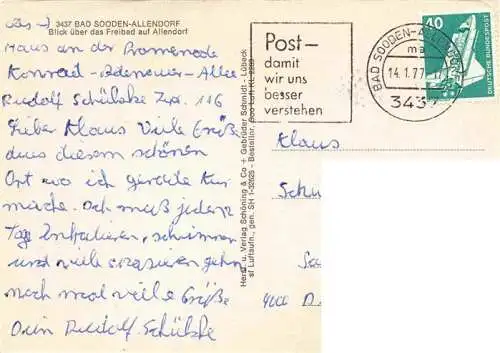 3437 BAD SOODEN-ALLENDORF
Blick über das Freibad auf Allendorf
Haus an der Promenade
Konrad-Adenauer-Allee
Rudolf Schülske 116
Lieber Klaus Viele Grüße
aus diesem schönen
Ort wo ich gerade Kur
mache. Ich muß jeden
Tag Inhalieren, schwimmen
und viele spazieren gehn
noch mal viele Grüße
Dein Rudolf Schülske
Herst. u. Verlag Schöning & Co + Gebrüder Schmidt - Lübeck
Post–
damit
wir uns
besser
verstehen
BAD SOODEN-
14.1.77
3437
40
DEUTSCHE BUNDESPOST
Klaus
Schu
4000 D